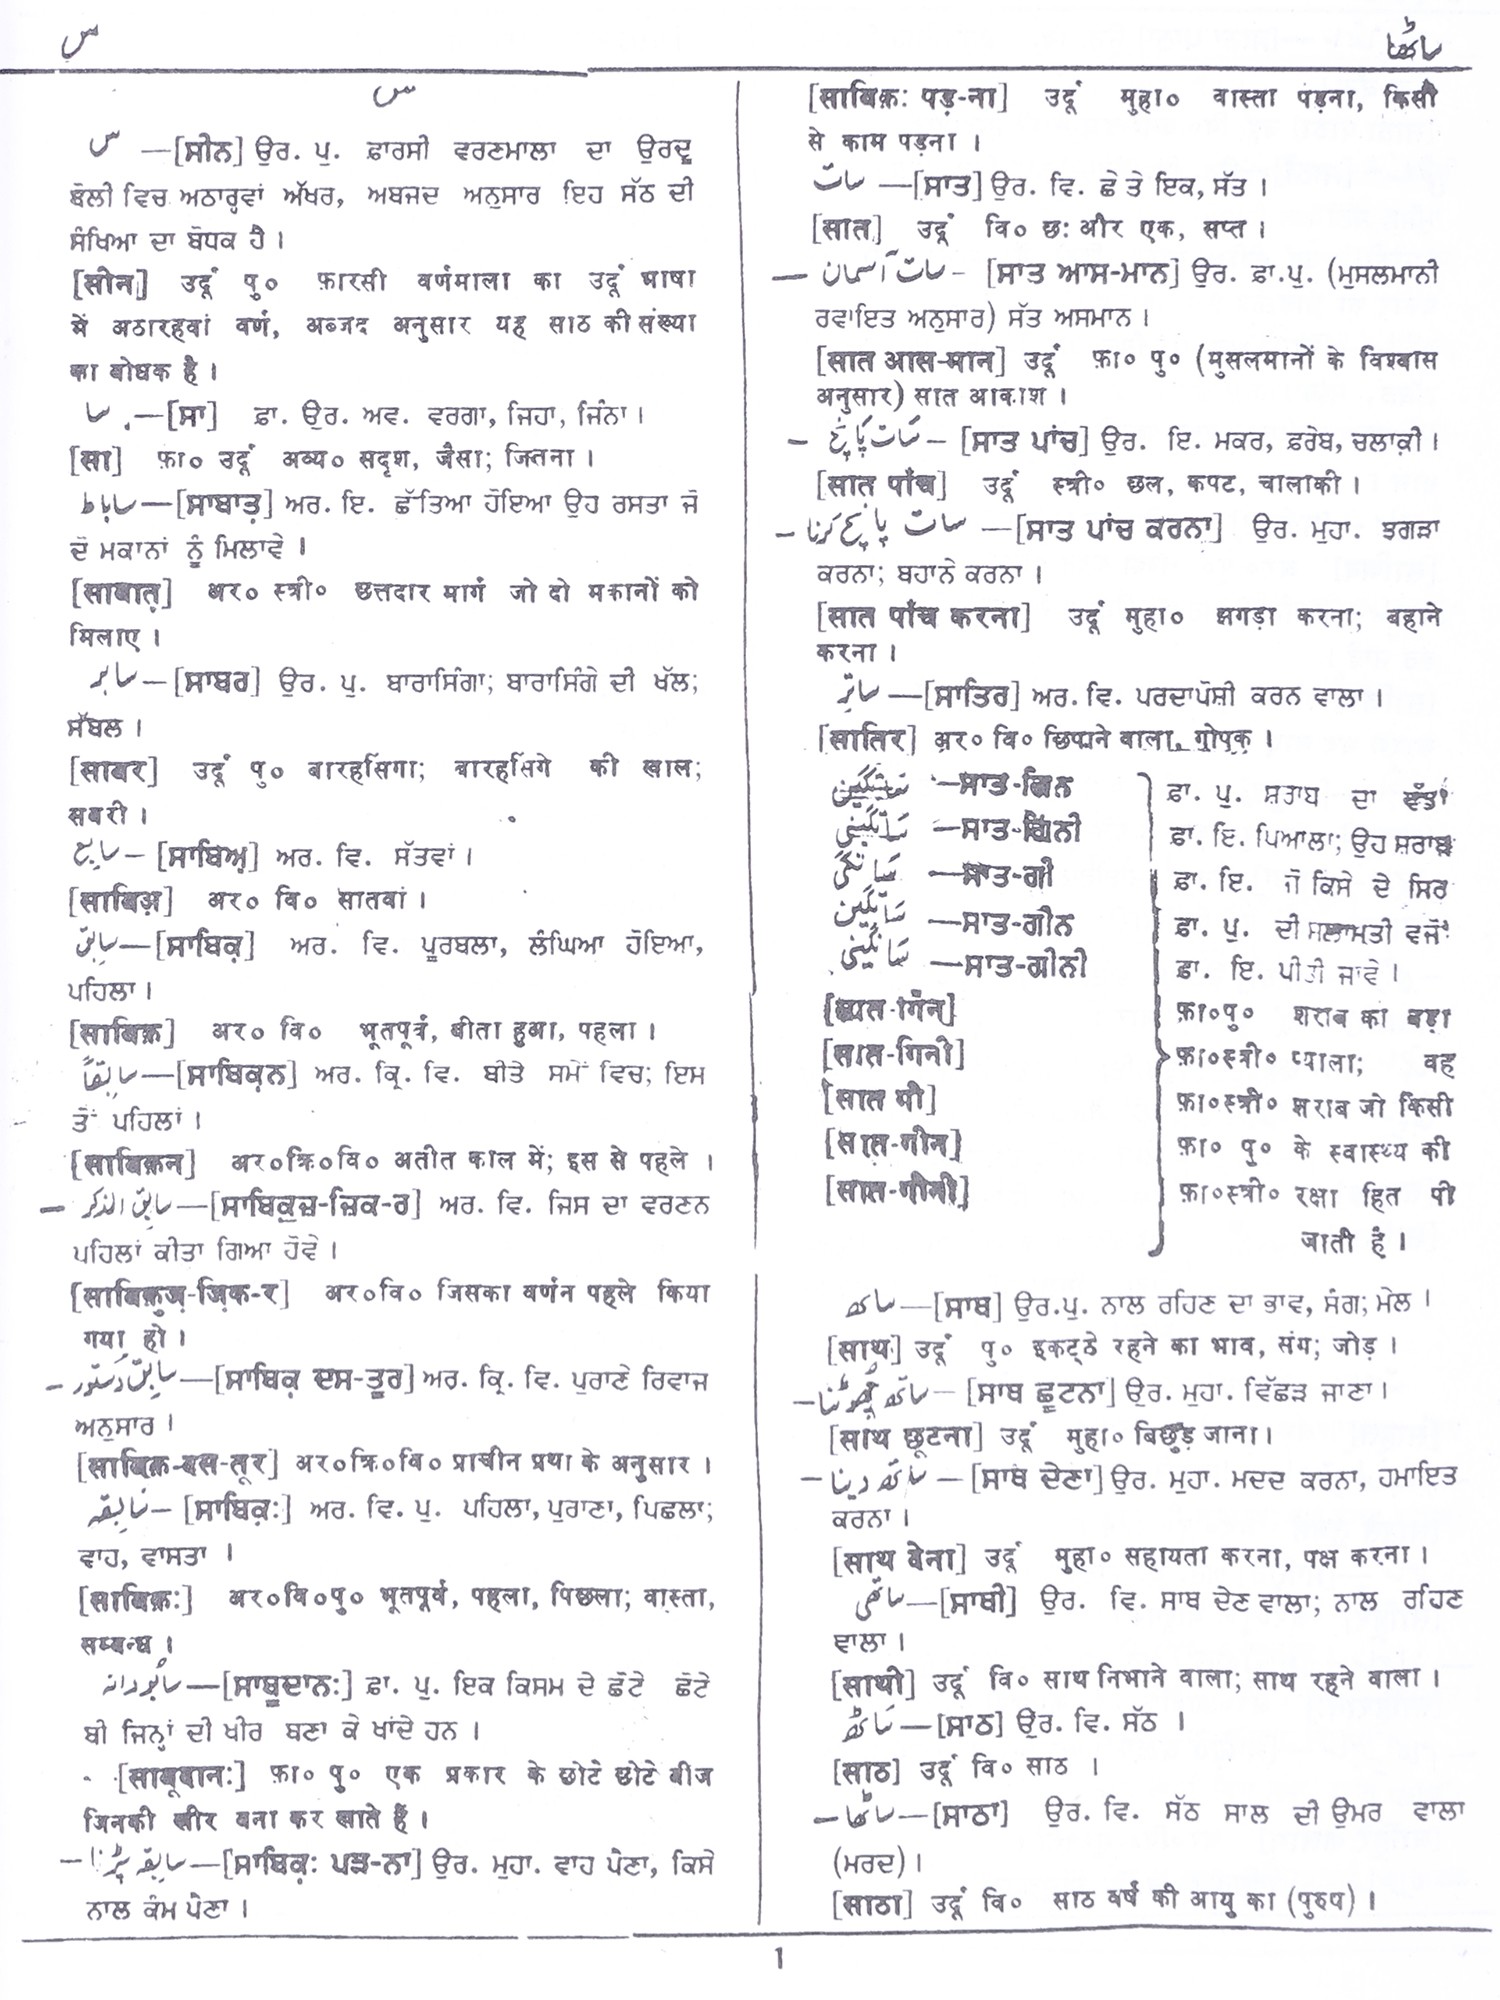 س
ساٹھا
س
س —[ਸੀਨ] ਉਰ. ਪੁ. ਫ਼ਾਰਸੀ ਵਰਣਮਾਲਾ ਦਾ ਉਰਦੂ
ਬੋਲੀ ਵਿਚ ਅਠਾਰ੍ਹਵਾਂ ਅੱਖਰ, ਅਬਜਦ ਅਨੁਸਾਰ ਇਹ ਸੱਠ ਦੀ
ਸੰਖਿਆ ਦਾ ਬੋਧਕ ਹੈ।
[सीन] उर्दू पु० फ़ारसी वर्णमाला का उर्दू भाषा
में अठारहवां वर्ण, अब्जद अनुसार यह साठ की संख्या
का बोधक है।
سا —[ਸਾ] ਫ਼ਾ. ਉਰ. ਅਵ. ਵਰਗਾ, ਜਿਹਾ, ਜਿੰਨਾ।
[सा] फ़ा० उर्दू अव्य० सदृश, जैसा; जितना।
ساباط —[ਸਾਬਾਤ਼] ਅਰ. ਇ. ਛੱਤਿਆ ਹੋਇਆ ਉਹ ਰਸਤਾ ਜੋ
ਦੋ ਮਕਾਨਾਂ ਨੂੰ ਮਿਲਾਵੇ।
[साबात़] अर० स्त्री० छत्तदार मार्ग जो दो मकानों को
मिलाए।
سابر —[ਸਾਬਰ] ਉਰ. ਪੁ. ਬਾਰਾਸਿੰਗਾ; ਬਾਰਾਸਿੰਗੇ ਦੀ ਖੱਲ;
ਸੱਬਲ।
[साबर] उर्दू पु० बारहसिंगा; बारहसिंगे की खाल;
सबरी।
سابع — [ਸਾਬਿਅ਼] ਅਰ. ਵਿ. ਸੱਤਵਾਂ।
[साबिअ़] अर० वि० सातवां।
سابق —[ਸਾਬਿਕ਼] ਅਰ. ਵਿ. ਪੂਰਬਲਾ, ਲੰਘਿਆ ਹੋਇਆ,
ਪਹਿਲਾ।
[साबिक़] अर० वि० भूतपूर्व, बीता हुआ, पहला।
سابقاً —[ਸਾਬਿਕ਼ਨ] ਅਰ. ਕ੍ਰਿ. ਵਿ. ਬੀਤੇ ਸਮੇਂ ਵਿਚ; ਇਸ
ਤੋਂ ਪਹਿਲਾਂ।
[साबिक़न] अर०क्रि०वि० अतीत काल में; इस से पहले।
— سابق الذکر —[ਸਾਬਿਕ਼ੁਜ਼-ਜ਼ਿਕ-ਰ] ਅਰ. ਵਿ. ਜਿਸ ਦਾ ਵਰਣਨ
ਪਹਿਲਾਂ ਕੀਤਾ ਗਿਆ ਹੋਵੇ।
[साबिक़ुज़-ज़िक-र] अर०वि० जिसका वर्णन पहले किया
गया हो।
— سابق دستور —[ਸਾਬਿਕ਼ ਦਸ-ਤੂਰ] ਅਰ. ਕ੍ਰਿ. ਵਿ. ਪੁਰਾਣੇ ਰਿਵਾਜ
ਅਨੁਸਾਰ।
[साबिक़-दस-तूर] अर०क्रि०वि० प्राचीन प्रथा के अनुसार।
سابقہ — [ਸਾਬਿਕ਼ਃ] ਅਰ. ਵਿ. ਪੁ. ਪਹਿਲਾ, ਪੁਰਾਣਾ, ਪਿਛਲਾ;
ਵਾਹ, ਵਾਸਤਾ।
[साबिक़ः] अर०वि०पु० भूतपूर्व, पहला, पिछला; वास्ता,
सम्बन्ध।
سابُودانہ —[ਸਾਬੂਦਾਨਃ] ਫ਼ਾ. ਪੁ. ਇਕ ਕਿਸਮ ਦੇ ਛੋਟੇ ਛੋਟੇ
ਬੀ ਜਿਨ੍ਹਾਂ ਦੀ ਖੀਰ ਬਣਾ ਕੇ ਖਾਂਦੇ ਹਨ।
[साबूदानः] फ़ा० पु० एक प्रकार के छोटे छोटे बीज
जिनकी खीर बना कर खाते हैं।
— سابقہ پڑنا —[ਸਾਬਿਕ਼ਃ ਪੜ-ਨਾ] ਉਰ. ਮੁਹਾ. ਵਾਹ ਪੈਣਾ, ਕਿਸੇ
ਨਾਲ ਕੰਮ ਪੈਣਾ।
[साबिक़ः पड़-ना] उर्दू मुहा० वास्ता पड़ना, किसी
से काम पड़ना।
سات —[ਸਾਤ] ਉਰ. ਵਿ. ਛੇ ਤੇ ਇਕ, ਸੱਤ।
[सात] उर्दू वि० छः और एक, सप्त।
— سات آسمان - [ਸਾਤ ਆਸ-ਮਾਨ] ਉਰ. ਫ਼ਾ.ਪੁ. (ਮੁਸਲਮਾਨੀ
ਰਵਾਇਤ ਅਨੁਸਾਰ) ਸੱਤ ਅਸਮਾਨ।
[सात आस-मान] उर्दू फ़ा० पु० (मुसलमानों के विश्वास
अनुसार) सात आकाश।
— سات پانچ — [ਸਾਤ ਪਾਂਚ] ਉਰ. ਇ. ਮਕਰ, ਫ਼ਰੇਬ, ਚਲਾਕੀ।
[सात पाँच] उर्दू स्त्री० छल, कपट, चालाकी।
— سات پانچ کرنا —[ਸਾਤ ਪਾਂਚ ਕਰਨਾ] ਉਰ. ਮੁਹਾ. ਝਗੜਾ
ਕਰਨਾ; ਬਹਾਨੇ ਕਰਨਾ।
[सात पांच करना] उर्दू मुहा० झगड़ा करना; बहाने
करना।
ساتر —[ਸਾਤਿਰ] ਅਰ. ਵਿ. ਪਰਦਾਪੋਸ਼ੀ ਕਰਨ ਵਾਲਾ।
[सातिर] अर० वि० छिपाने वाला, गोपक।
ساتگین —ਸਾਤ-ਗਿਨ ਫ਼ਾ. ਪੁ. ਸ਼ਰਾਬ ਦਾ ਵੱਡਾ
ساتگینی —ਸਾਤ-ਗਿਨੀ ਫ਼ਾ. ਇ. ਪਿਆਲਾ; ਉਹ ਸ਼ਰਾਬ
ساتگی —ਸਾਤ-ਗੀ ਫ਼ਾ. ਇ. ਜੋ ਕਿਸੇ ਦੇ ਸਿਰ
ساتگین —ਸਾਤ-ਗੀਨ ਫ਼ਾ. ਪੁ. ਦੀ ਸਲਾਮਤੀ ਵਜੋਂ
ساتگینی —ਸਾਤ-ਗੀਨੀ ਫ਼ਾ. ਇ. ਪੀਤੀ ਜਾਵੇ।
[सात-गिन] फ़ा०पु० शराब का बड़ा
[सात-गिनी] फ़ा०स्त्री० प्याला; वह
[सात गी] फ़ा०स्त्री० शराब जो किसी
[सात-गीन] फ़ा० पु० के स्वास्थ्य की
[सात-गीनी] फ़ा०स्त्री० रक्षा हित पी
जाती है।
ساتھ —[ਸਾਥ] ਉਰ.ਪੁ. ਨਾਲ ਰਹਿਣ ਦਾ ਭਾਵ, ਸੰਗ; ਮੇਲ।
[साथ] उर्दू पु० इकट्ठे रहने का भाव, संग; जोड़।
— ساتھ چھوٹنا — [ਸਾਥ ਛੂਟਨਾ] ਉਰ. ਮੁਹਾ. ਵਿੱਛੜ ਜਾਣਾ।
[साथ छूटना] उर्दू मुहा० बिछुड़ जाना।
— ساتھ دینا — [ਸਾਥ ਦੇਣਾ] ਉਰ. ਮੁਹਾ. ਮਦਦ ਕਰਨਾ, ਹਮਾਇਤ
ਕਰਨਾ।
[साथ देना] उर्दू मुहा० सहायता करना, पक्ष करना।
ساتھی —[ਸਾਥੀ] ਉਰ. ਵਿ. ਸਾਥ ਦੇਣ ਵਾਲਾ; ਨਾਲ ਰਹਿਣ
ਵਾਲਾ।
[साथी] उर्दू वि० साथ निभाने वाला; साथ रहने वाला।
ساٹھ —[ਸਾਠ] ਉਰ. ਵਿ. ਸੱਠ।
[साठ] उर्दू वि० साठ।
— ساٹھا —[ਸਾਠਾ] ਉਰ. ਵਿ. ਸੱਠ ਸਾਲ ਦੀ ਉਮਰ ਵਾਲਾ
(ਮਰਦ)।
[साठा] उर्दू वि० साठ वर्ष की आयु का (पुरुष)।
1